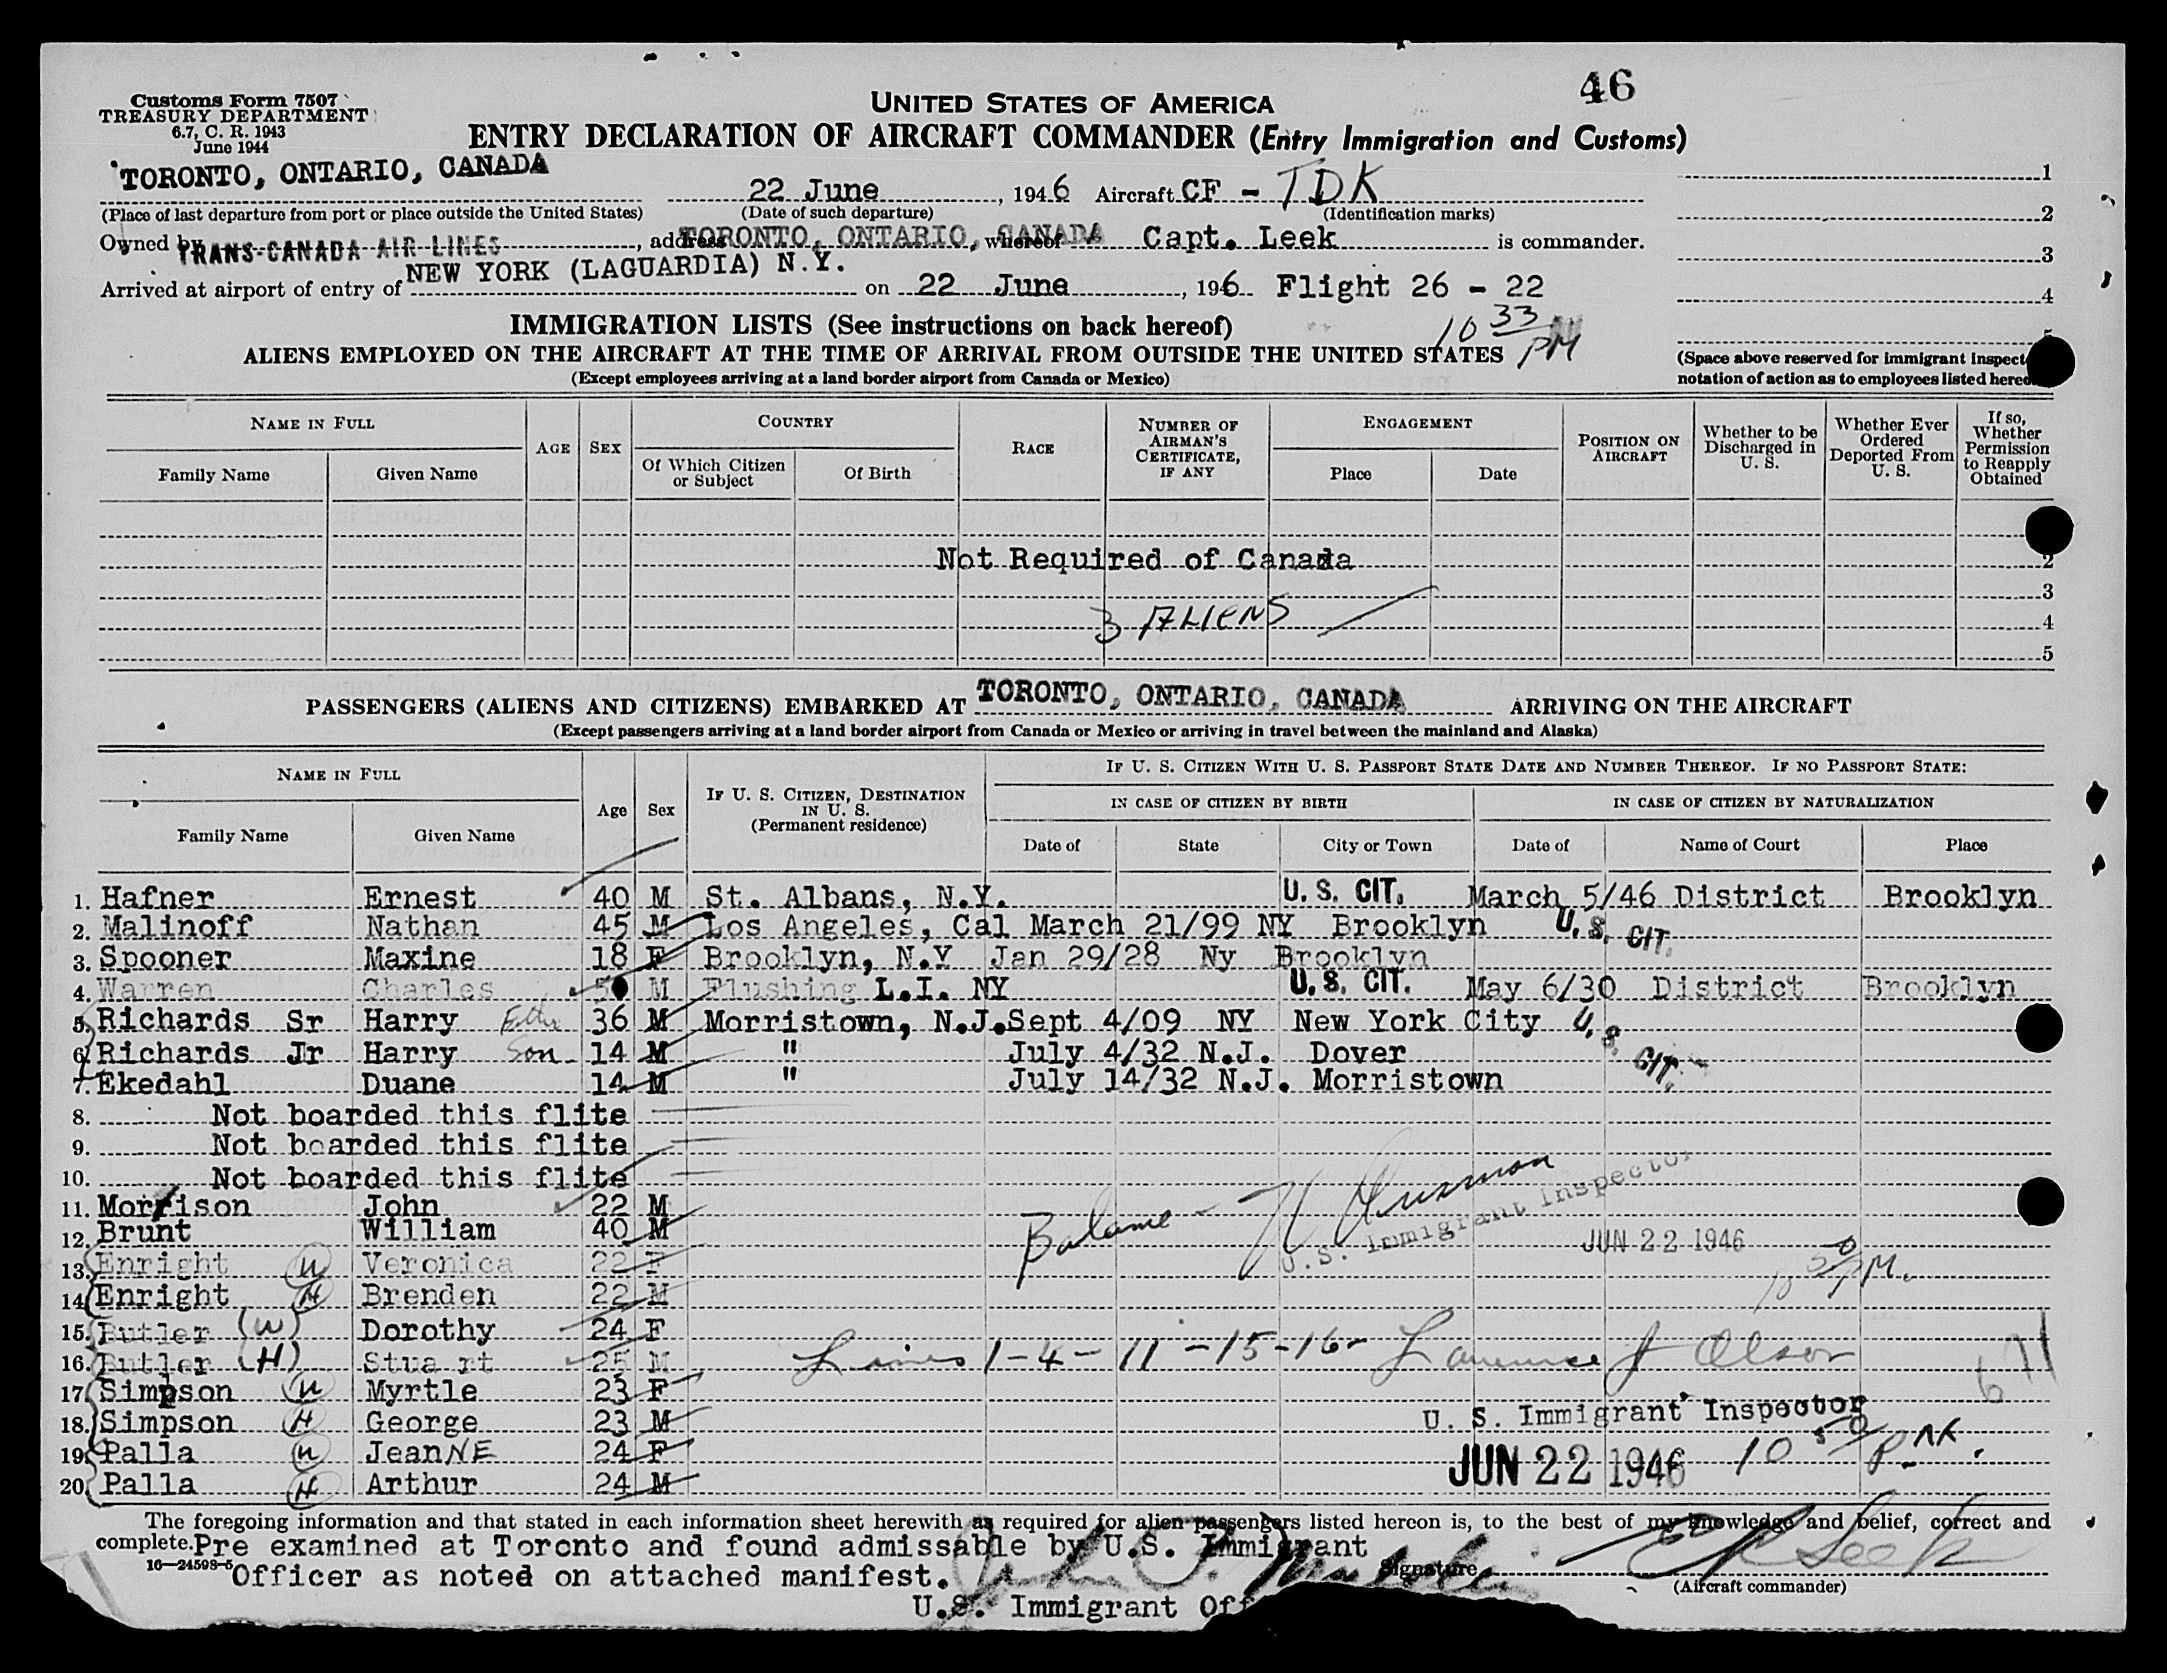 46
Customs Form 7507
TREASURY DEPARTMENT
6.7, C. R. 1943
June 1944
UNITED STATES OF AMERICA
ENTRY DECLARATION OF AIRCRAFT COMMANDER (Entry Immigration and Customs)
TORONTO, ONTARIO, CANADA 22 June, 1946 Aircraft CF - TDK
(Place of last departure from port or place outside the United States) (Date of such departure) (Identification marks)
Owned by TRANS-CANADA AIR LINES, address TORONTO, ONTARIO, CANADA whereof Capt. Leek is commander.
Arrived at airport of entry of NEW YORK (LAGUARDIA) N.Y. on 22 June, 1946 Flight 26 - 22
1
2
3
4
5
IMMIGRATION LISTS (See instructions on back hereof) 10 33 PM
ALIENS EMPLOYED ON THE AIRCRAFT AT THE TIME OF ARRIVAL FROM OUTSIDE THE UNITED STATES
(Except employees arriving at a land border airport from Canada or Mexico)
(Space above reserved for immigrant inspect
notation of action as to employees listed
NAME IN FULL
Family Name Given Name
AGE SEX
COUNTRY
Of Which Citizen or Subject Of Birth
RACE
NUMBER OF AIRMAN'S CERTIFICATE, IF ANY
ENGAGEMENT
Place Date
POSITION ON AIRCRAFT
Whether to be Discharged in U. S.
Whether Ever Ordered Deported From U. S.
If so, Whether Permission to Reapply Obtained
Not Required of Canada
2
3
3 ALIENS
4
5
PASSENGERS (ALIENS AND CITIZENS) EMBARKED AT TORONTO, ONTARIO, CANADA ARRIVING ON THE AIRCRAFT
(Except passengers arriving at a land border airport from Canada or Mexico or arriving in travel between the mainland and Alaska)
NAME IN FULL
Family Name Given Name
Age Sex
IF U. S. CITIZEN, DESTINATION IN U. S. (Permanent residence)
IF U. S. CITIZEN WITH U. S. PASSPORT STATE DATE AND NUMBER THEREOF. IF NO PASSPORT STATE:
IN CASE OF CITIZEN BY BIRTH IN CASE OF CITIZEN BY NATURALIZATION
Date of State City or Town Date of Name of Court Place
1. Hafner Ernest 40 M St. Albans, N.Y. U. S. CIT. March 5/46 District Brooklyn
2. Malinoff Nathan 45 M Los Angeles, Cal March 21/99 NY Brooklyn U. S. CIT.
3. Spooner Maxine 18 F Brooklyn, N.Y Jan 29/28 Ny Brooklyn
4. Warren Charles M Flushing L.I. NY U. S. CIT. May 6/30 District Brooklyn
5. Richards Sr Harry 36 M Morristown, N.J. Sept 4/09 NY New York City U. S. CIT.
6. Richards Jr Harry Son 14 M " July 4/32 N.J. Dover
7. Ekedahl Duane 14 M " July 14/32 N.J. Morristown
8. Not boarded this flite
9. Not boarded this flite
10. Not boarded this flite
11. Morrison John 22 M
12. Brunt William 40 M
13. Enright W Veronica 22 F
14. Enright H Brenden 22 M
15. Butler (W) Dorothy 24 F
16. Butler (H) Stuart 25 M
17. Simpson W Myrtle 23 F
18. Simpson H George 23 M
19. Palla W JeanNE 24 F
20. Palla H Arthur 24 M
Balance -
U. S. Immigrant Inspector
JUN 22 1946
10 50 PM.
Lines 1-4-11-15-16- Lawrence J Olson
U. S. Immigrant Inspector
JUN 22 1946 10 50 P.M.
The foregoing information and that stated in each information sheet herewith as required for alien passengers listed hereon is, to the best of my knowledge and belief, correct and
complete. Pre examined at Toronto and found admissable by U.S. Immigrant
16—24593-5 Officer as noted on attached manifest.
Signature
(Aircraft commander)
U.S. Immigrant Off